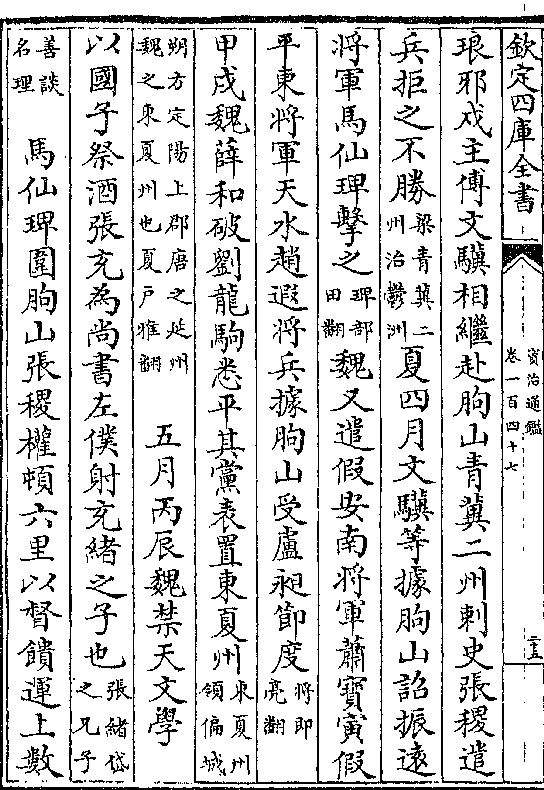 欽定四庫全書
資治通鑑
卷一百四十七
二五
琅邪戍主傅文驥相繼赴朐山青冀二州刺史張稷遣
兵拒之不勝梁青冀二州治鬱洲夏四月文驥等據朐山詔振遠
將軍馬仙琕擊之琕部田翻魏又遣假安南將軍蕭寶寅假
平東將軍天水趙遐將兵據朐山受盧昶節度將即亮翻
甲戌魏薛和破劉龍駒悉平其黨表置東夏州東夏州領偏城
朔方定陽上郡唐之延州魏之東夏州也夏戶雅翻 五月丙辰魏禁天文學
以國子祭酒張充為尚書左僕射充緒之子也張緒岱之兄子
善談名理 馬仙琕圍朐山張稷權頓六里以督饋運上數